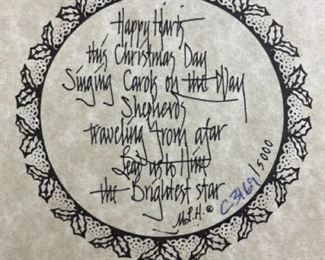 Happy Harts
this Christmas Day
Singing Carols on the Way
Shepherds
traveling from afar
Lead us to Him
the Brightest star
M.L.H. ©
C-3169/5000